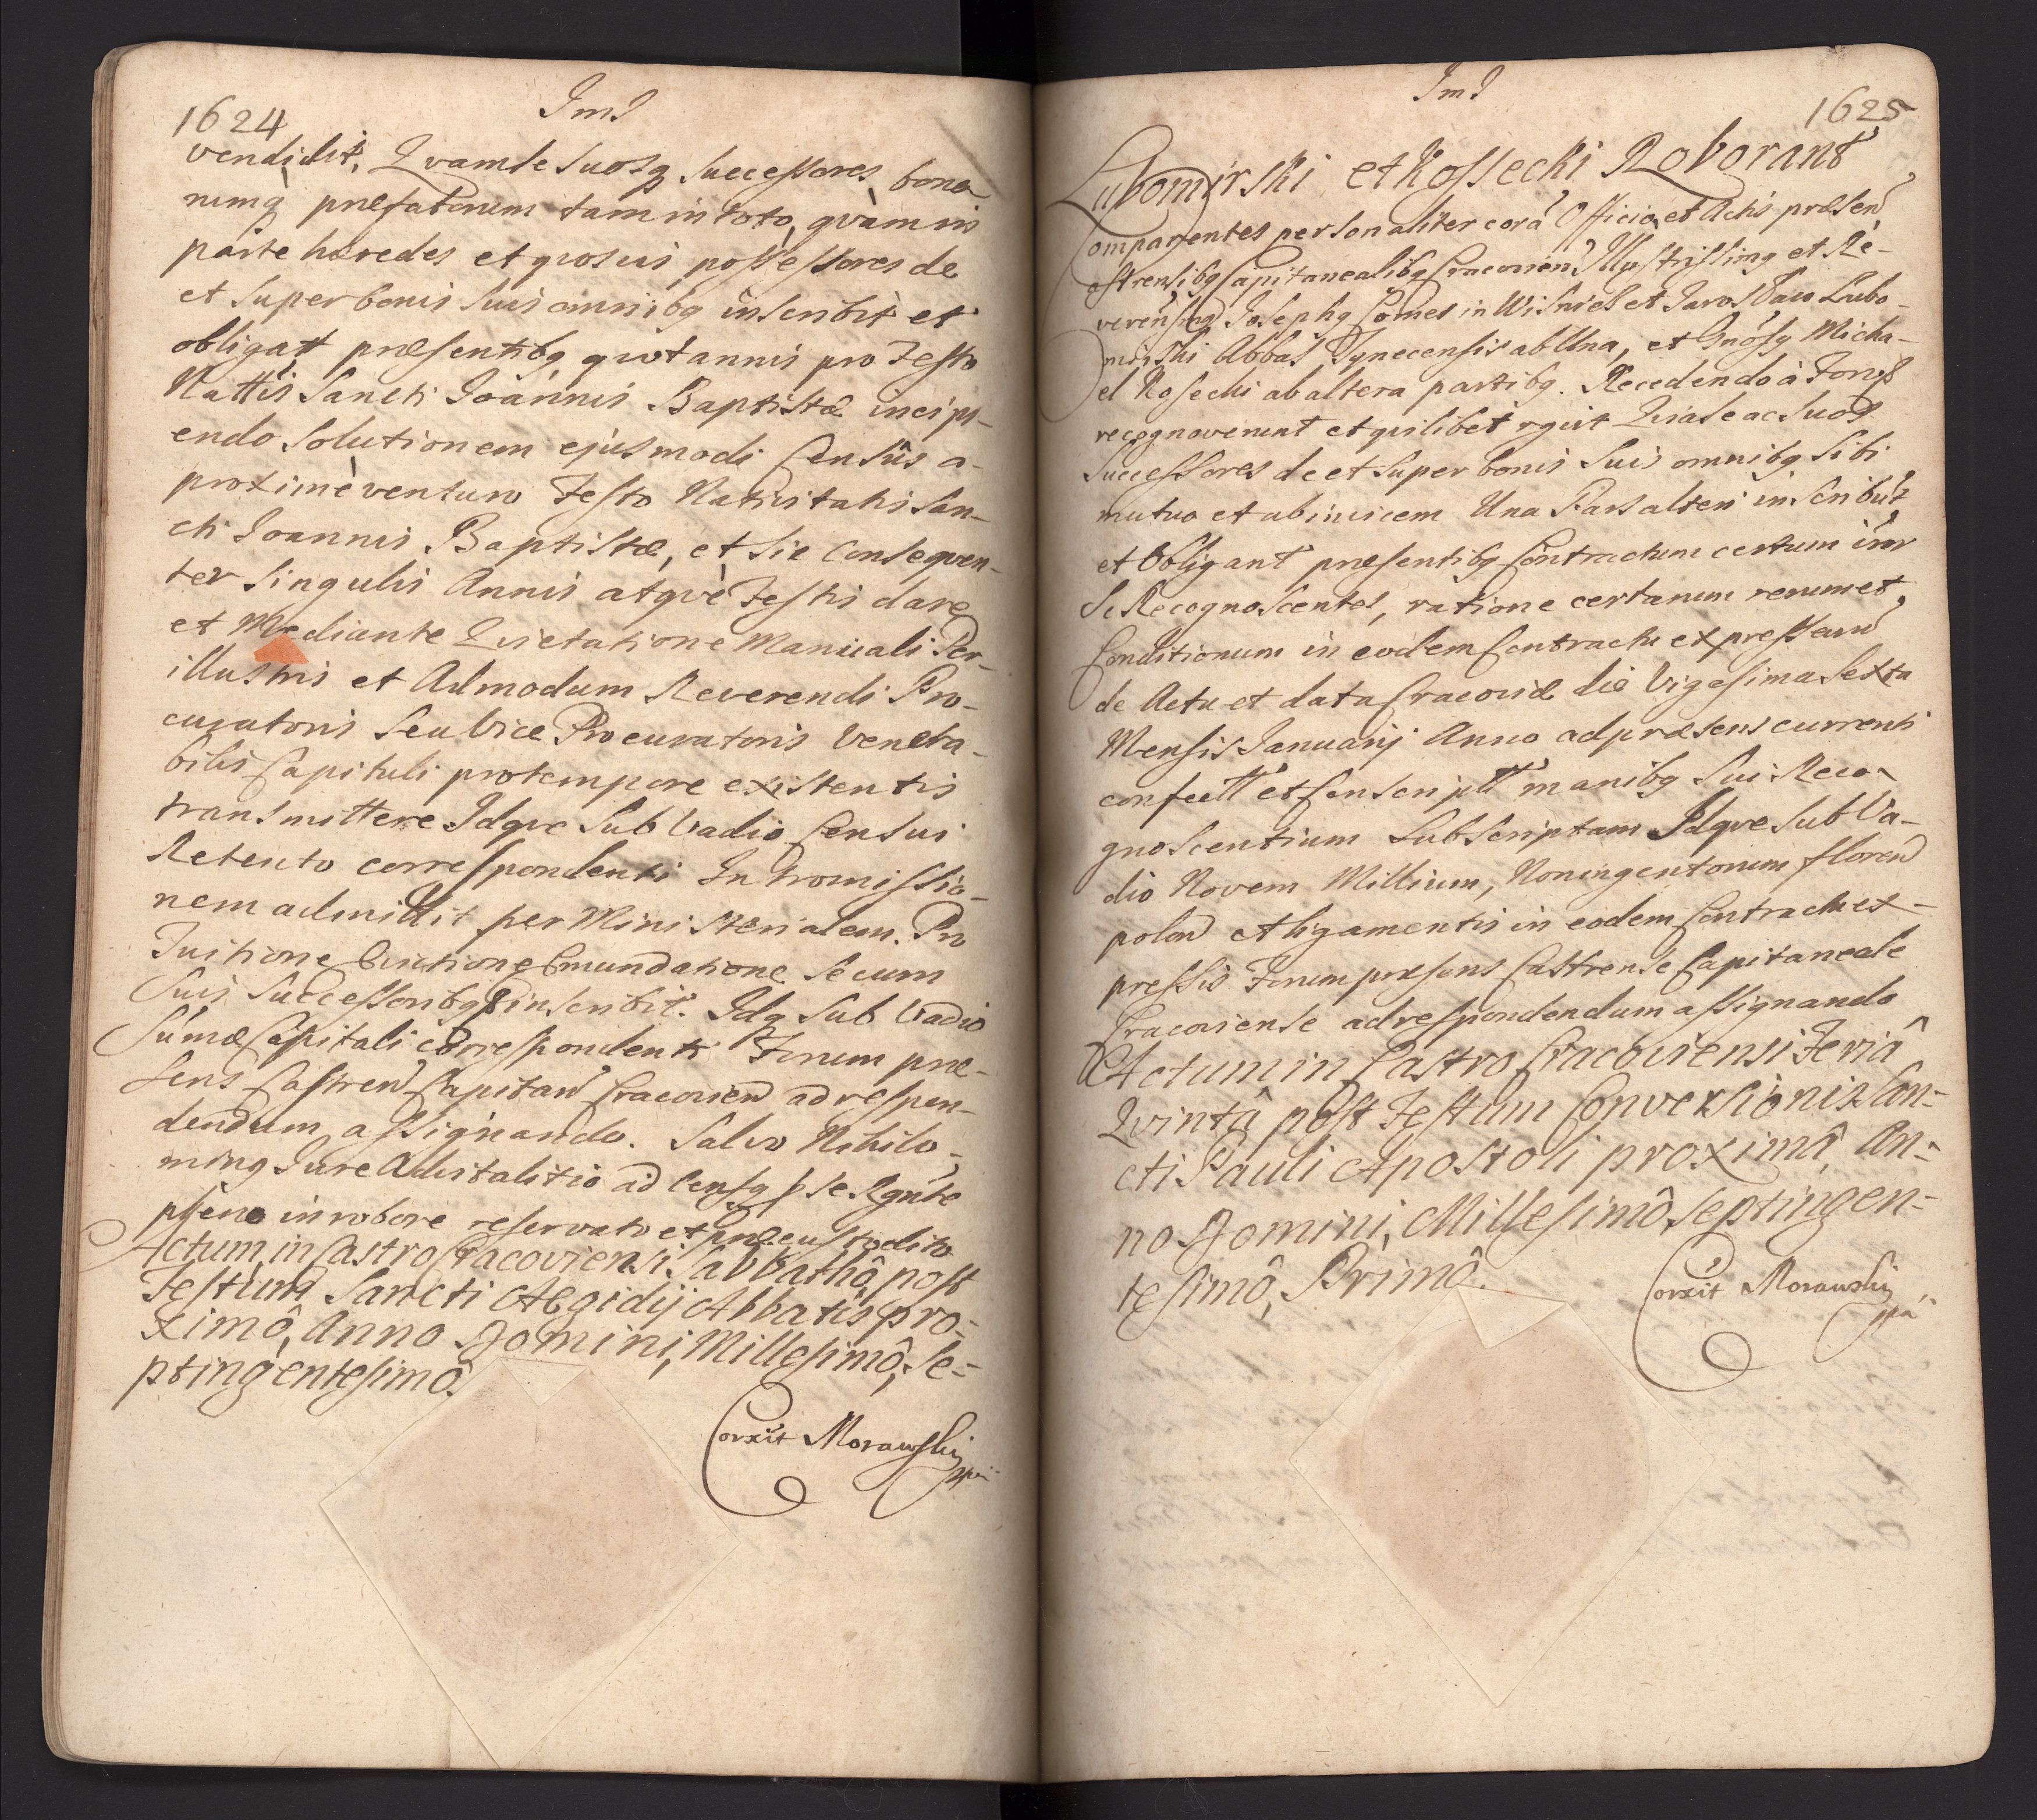 1624
Im?
vendidit, Qvamse suosq successores, bono-
rumq præfatorum tam in toto, qvàm in
parte hæredes et qvosvis possessores de
et super bonis suis omnibq inscribit et
obligat præsentibq qvotannis pro Festo
Nattis Sancti Joannis Baptistæ incipi-
endo solutionem ejusmodi Censûs a
proximè venturo Festo Nativitatis San-
cti Joannis Baptistæ, et sic conseqven-
ter singulis Annis atqvè Festis dare
et Mediante Qvietatione Manuali Per-
illustris et Admodum Reverendi Pro-
curatoris seu Vice Procuratoris Venera-
bilis Capituli pro tempore existentis
transmittere Idqve sub Vadio Censui
Retento correspondenti Intromissio-
nem admittit per Ministerialem. Pro
Tuitione Evictione Emundatione se cum
suis successoribq inscribit. Idq sub Vadio
sumæ Capitali correspondenti Forum præ-
sens Castren Capitan Cracovien ad respon-
dendum assignando. Salvo Nihilo-
minq Jure Advitalitio ad censq se Rgnte
plene in robore reservato et præcustodito
Actum in Castro Cracoviensi Sabbathô post
Festum Sancti Aegidij Abbatis pro-
ximô, Anno Domini, Millesimô, Se-
ptingentesimô.
Corxit Morawski
mpa
Im?
1625
Lubomirski et Kossecki Roborant
Comparentes personaliter corā Officio et Actis præsen
Castrensibq Capitanealibq Cracovien Illustrissimq et Re-
verensmq Josephq Comes in Wisnicz et Jaroslaw Lubo-
mirski Abbas Tynecensis ab Una, et Gnosq Micha-
el Kosecki ab altera partibq. Recedendo à Foris
recognoverunt et qvilibet rgvit Qvia se ac suos
successores de et super bonis suis omnibq sibi
mutuo et ab invicem Una Pars alteri inscribut
et Obligant præsentibq Contractum certum inter
se Recognoscentes, ratione certarum rerum et
Conditionum in eodem Contractu expressarū
de Actu et data Cracoviæ die Vigesima sexta
Mensis Januarij Anno ad præsens currenti
confectū et Conscriptū manibq sui Reco-
gnoscentium subscriptam Idqve sub Va-
dio Novem Millium, Noningentorum floren
polon et ligamentis in eodem Contractu ex-
pressis Forum præsens Castrense Capitaneale
Cracoviense ad respondendum assignando
Actum in Castro Cracoviensi Feriâ
Qvintâ post Festum Conversionis San-
cti Pauli Apostoli proximâ, An-
no Domini, Millesimô, Septingen-
tesimô, Primô.
Corxit Morawski
mpa